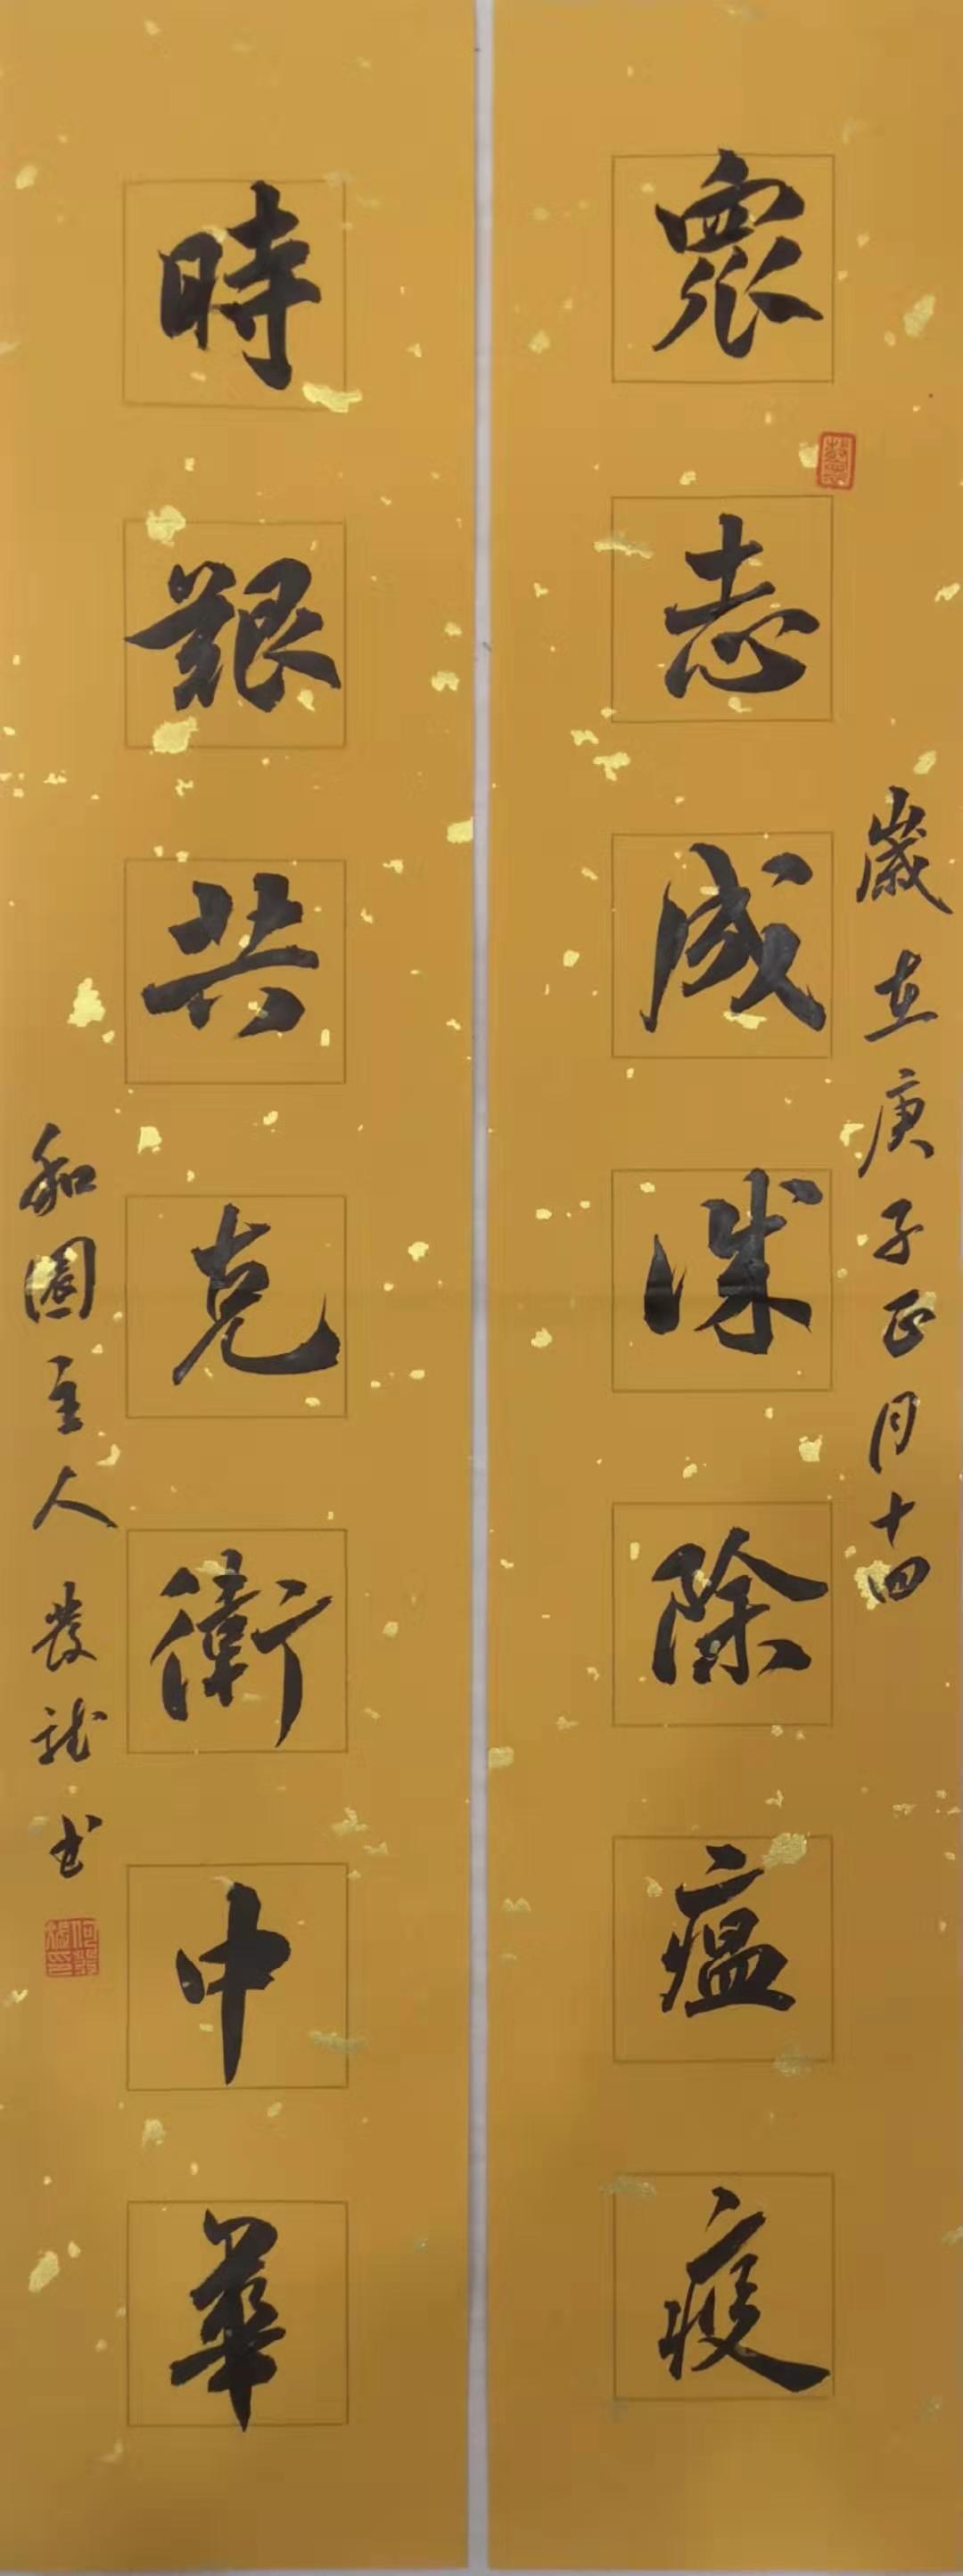 歲在庚子正月十四
衆志成城除瘟疫
時艱共克衛中華
和園主人發龍書
何發龍印